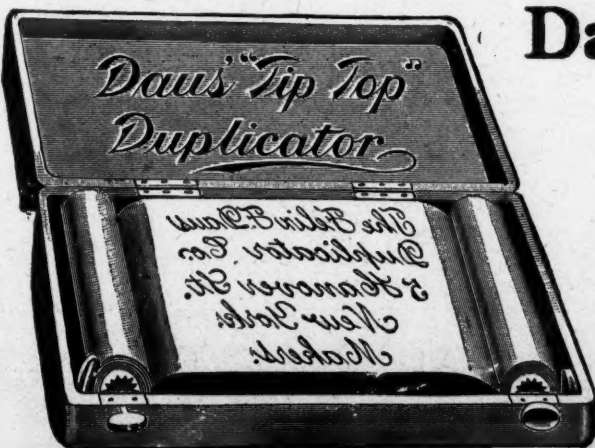 Da
Daus' "Tip Top"
Duplicator
The Felix F. Daus
Duplicator Co.
5 Hanover St.
New York.
Makers.